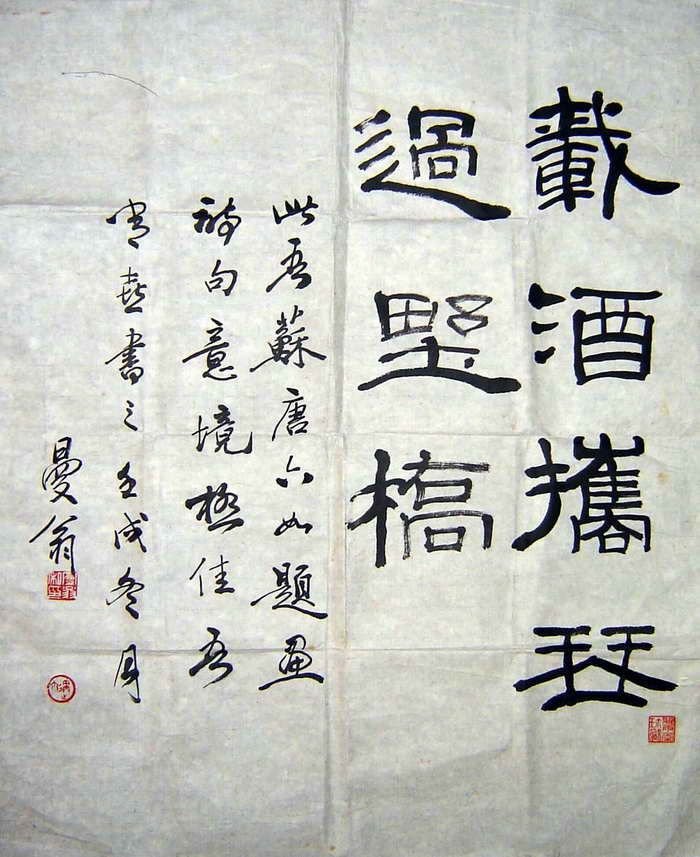 載酒攜琴
過野橋
此吾蘇唐六如題畫
詩句意境極佳吾
常喜書之壬戌冬月
曼翁